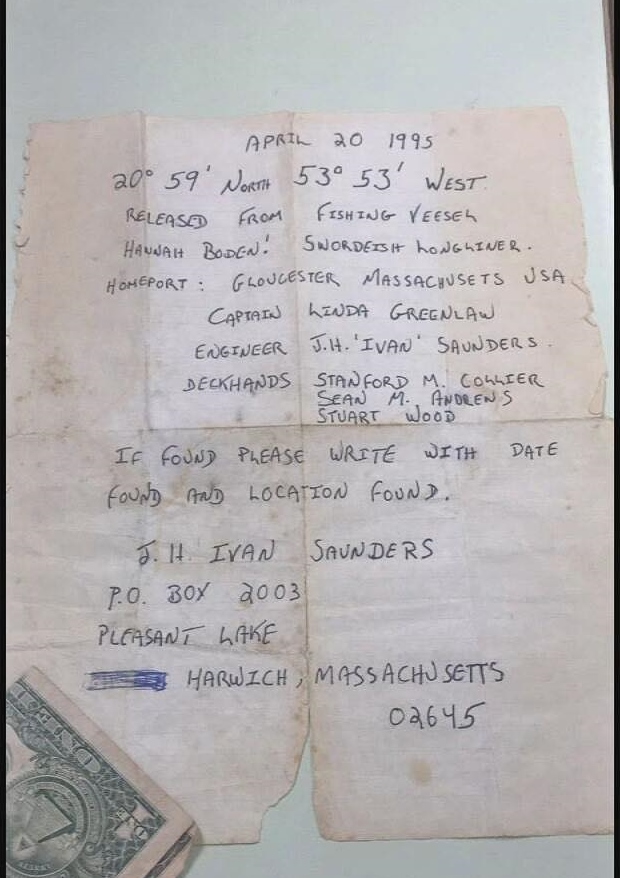 APRIL 20 1995
20° 59' NORTH 53° 53' WEST.
RELEASED FROM FISHING VEESEL
HANNAH BODEN! SWORDFISH LONGLINER.
HOMEPORT: GLOUCESTER MASSACHUSETS USA
CAPTAIN LINDA GREENLAW
ENGINEER J.H. 'IVAN' SAUNDERS.
DECKHANDS STANFORD M. COLLIER
SEAN M. ANDREWS
STUART WOOD
IF FOUND PLEASE WRITE WITH DATE
FOUND AND LOCATION FOUND.
J. H. IVAN SAUNDERS
P.O. BOX 2003
PLEASANT LAKE
HARWICH, MASSACHUSETTS
02645
ONE